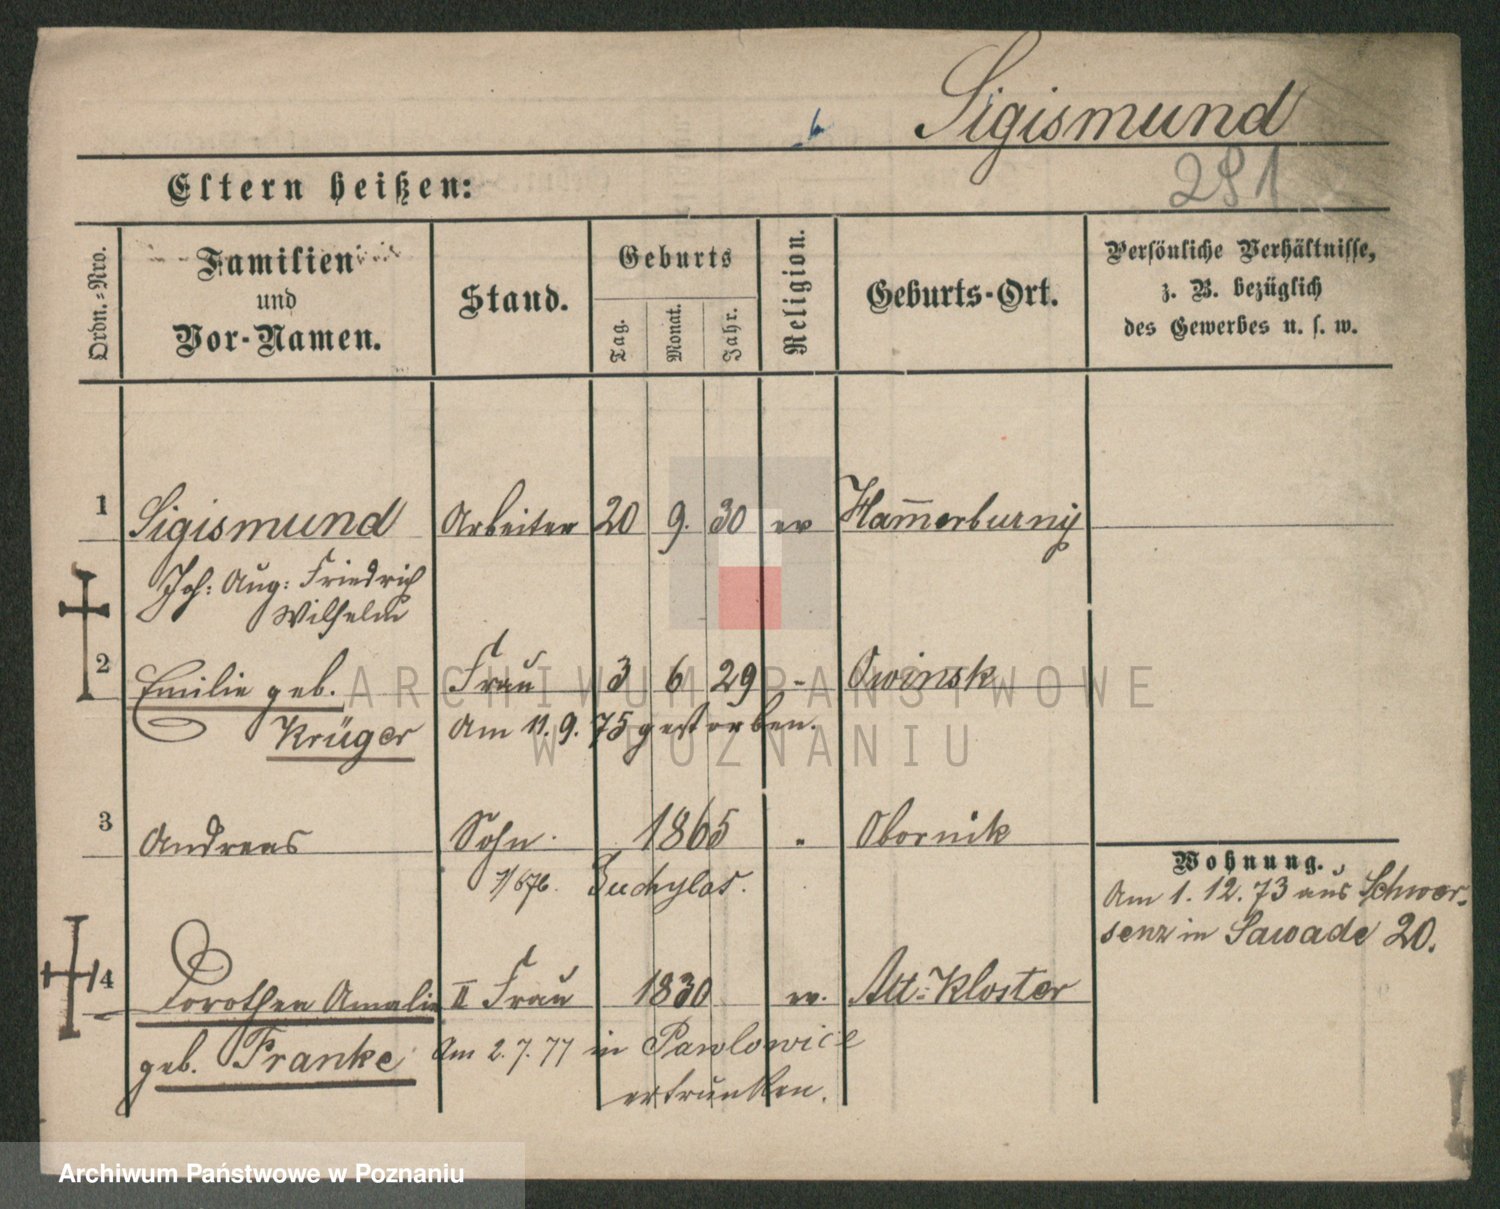 Sigismund
281
Eltern heißen:
Ordn.-Nro.
Familien
und
Vor-Namen.
Stand.
Geburts
Tag.
Monat.
Jahr.
Religion.
Geburts-Ort.
Persönliche Verhältnisse,
z. B. bezüglich
des Gewerbes u. s. w.
1 Sigismund Arbeiter 20 9. 30 ev Ham̅erburny
Joh: Aug: Friedrich
Wilhelm
2 Emilie geb. Frau 3 6 29 " Owinsk
Krüger Am 11. 9. 75 gestorben.
3 Andreas Sohn 1865 " Obornik
Wohnung.
Am 1. 12. 73 aus Schwer-
senz in Sawade 20.
4 Dorothea Amalie II Frau 1830 ev. Alt-Kloster
geb. Franke Am 2. 7. 77 in Pawlowice
ertrunken.
ARCHIWUM PAŃSTWOWE
W POZNANIU
Archiwum Państwowe w Poznaniu